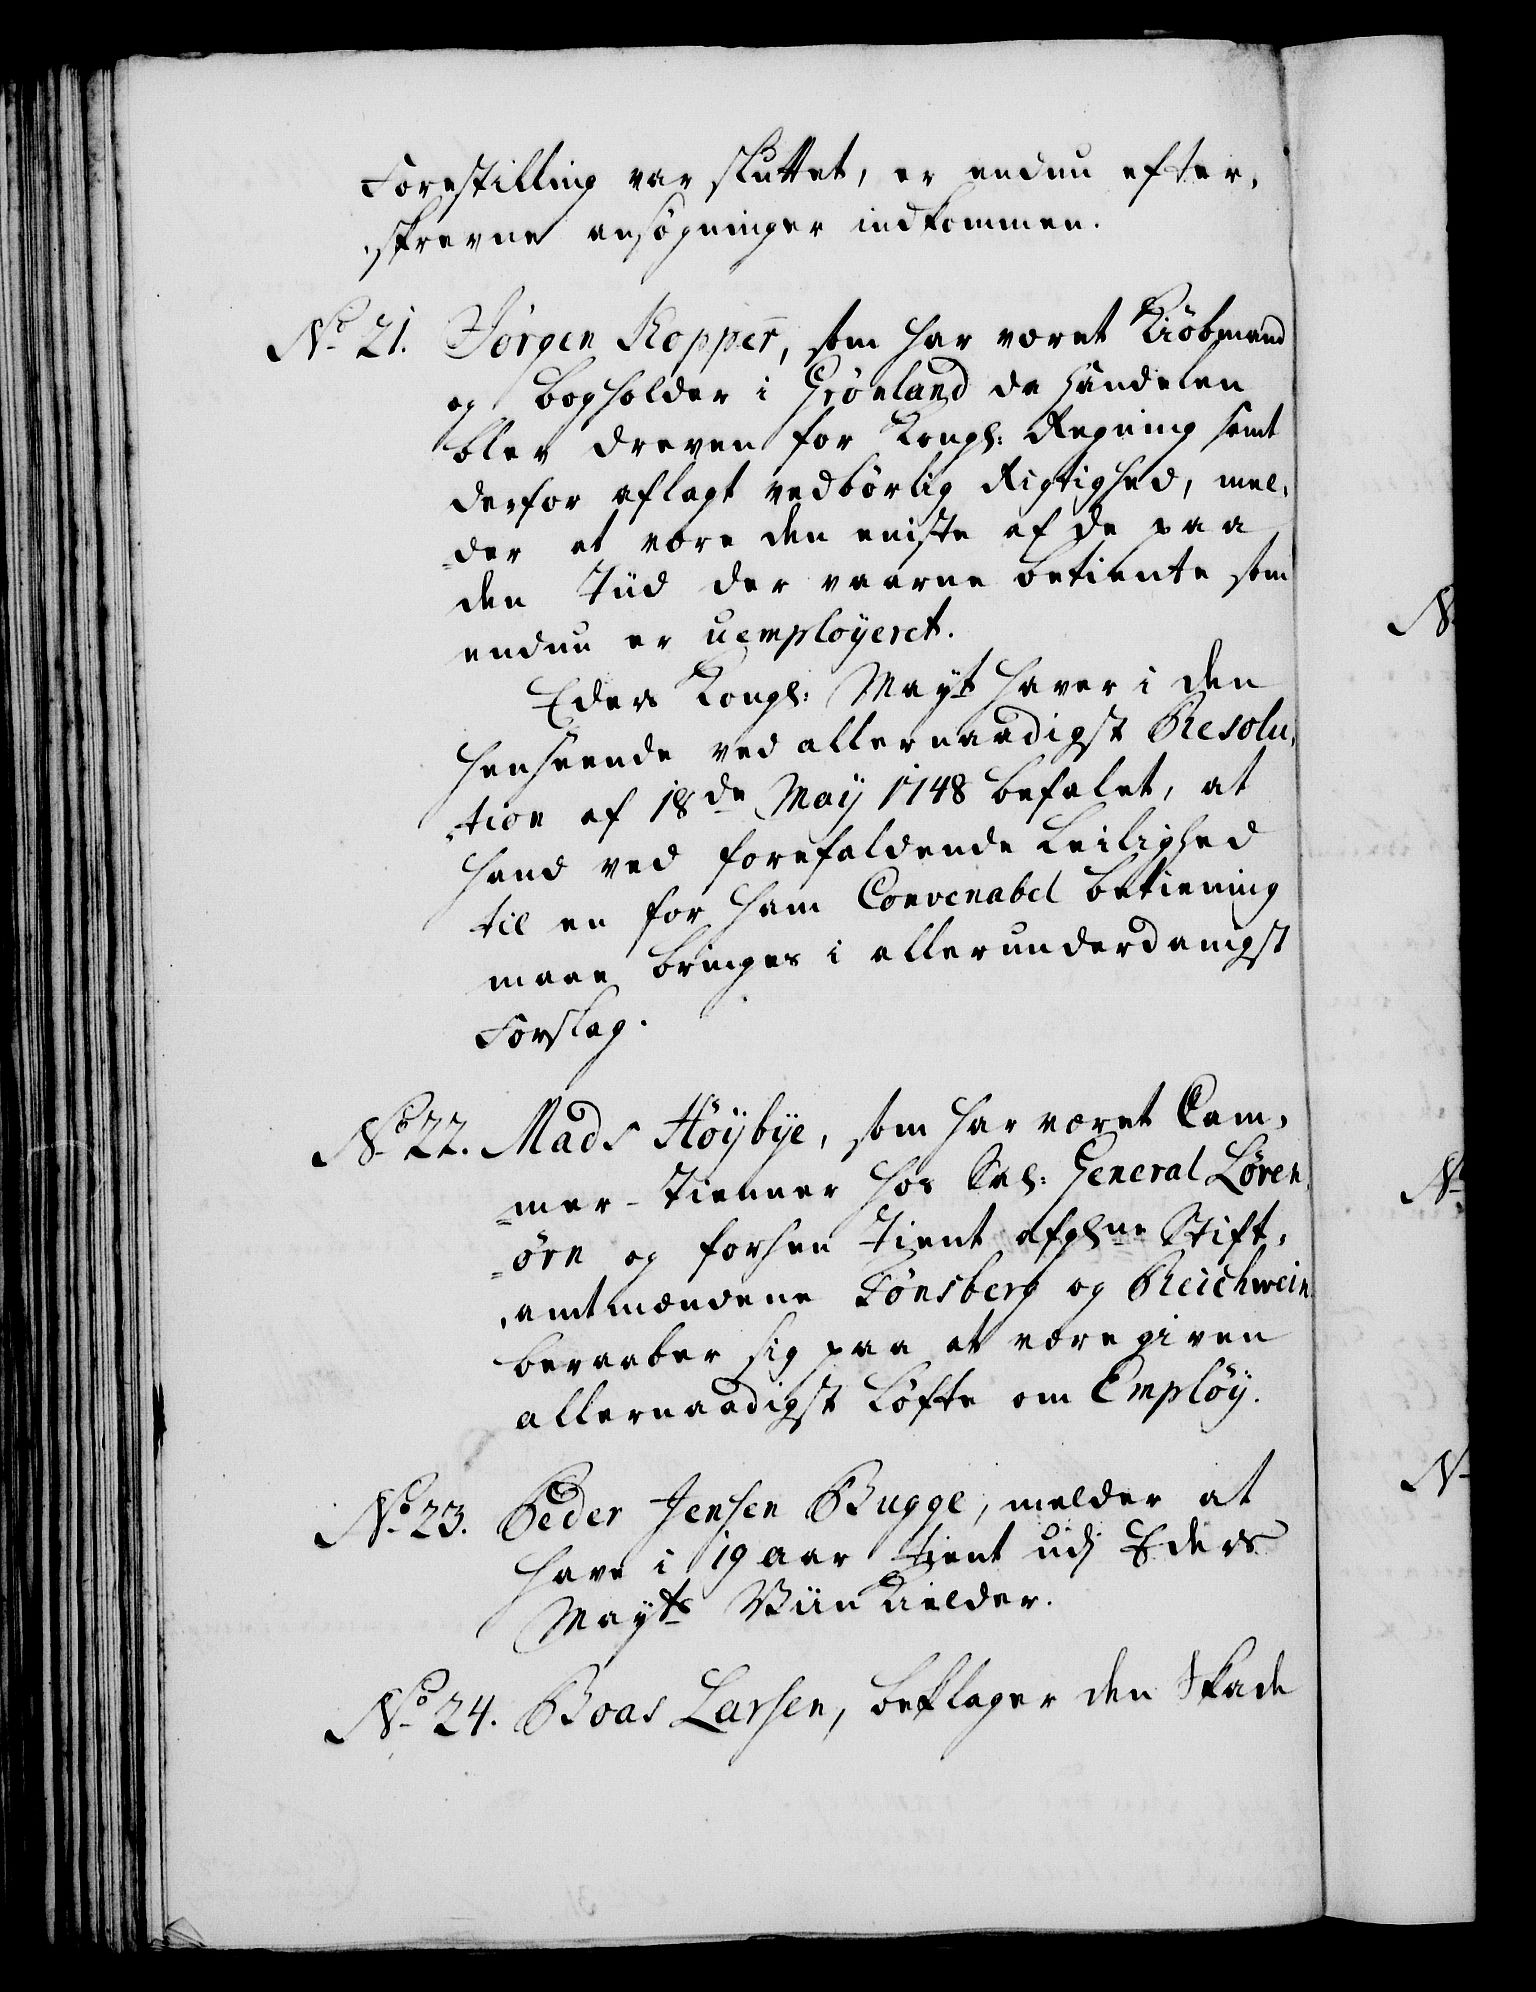 Forestilling var sluttet, er endnu efter,
,skrevne ansøgninger indkommen.
No 21. Jörgen Kopper, som har været Kiöbmand
og bogholder i Grönland da Handelen
blev dreven for Kongl: Regning samt
derfor aflagt vedbörlig Rigtighed, mel,
=der at være den eniste af de paa
den Tiid der vaarne betiente som
endnu er uemployeret.
Eders Kongl: Mayt haver i den
henseende ved allernaadigst Resolu,
,tion af 18de May 1748 befalet, at
hand ved forefaldende Leilighed
til en for ham Convenabel betiening
maae bringes i allerunderdanigst
Forslag.
No 22. Mads Höybye, som har været Cam,
=mer-Tienner hos Sal: General Löven,
=örn og forhen tient afgl:ne Stift,
,amtmændene Tönsberg og Reichwein
beraaber sig paa at være given
allernaadigst Löfte om Emplöy.
No 23. Peder Jensen Bugge, melder at
have i 19 aar tient udj Eders
Mayts Viin Kielder.
No 24. Boas Larsen, beklager den Skade
No
No
No